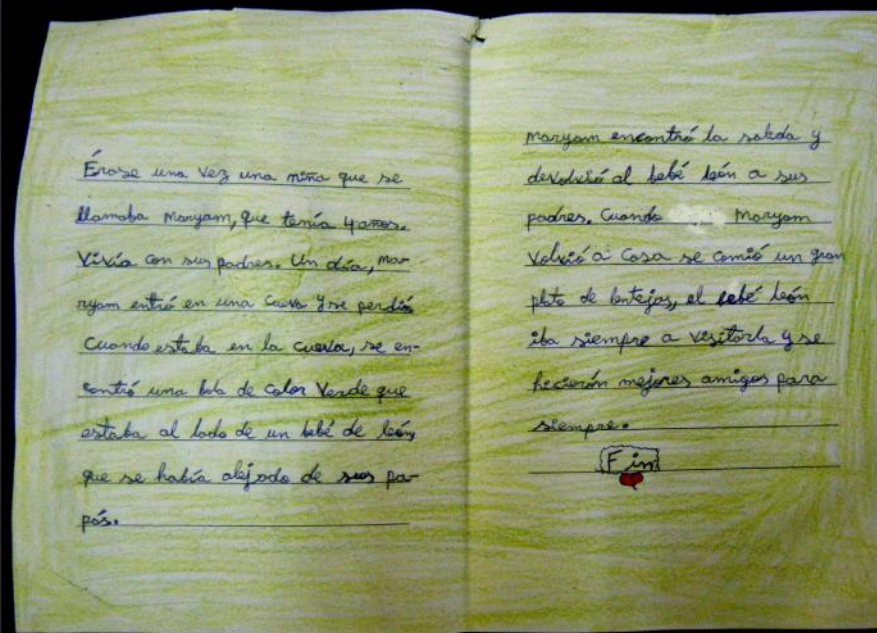 Érase una vez una niña que se
llamaba Maryam, que tenía 4 años.
Vivía con sus padres. Un día, Mar-
ryam entró en una Cueva y se perdió
Cuando estaba en la cueva, se en-
contró una bola de color Verde que
estaba al lado de un bebé de león,
que se había alejado de sus pa-
pás.
Maryam encontró la salida y
devolvió al bebé león a sus
padres. Cuando Maryam
Volvió a Casa se comió un gran
plato de lentejas, el bebé león
iba siempre a vesitarla y se
hicierón mejores amigos para
siempre.
Fin